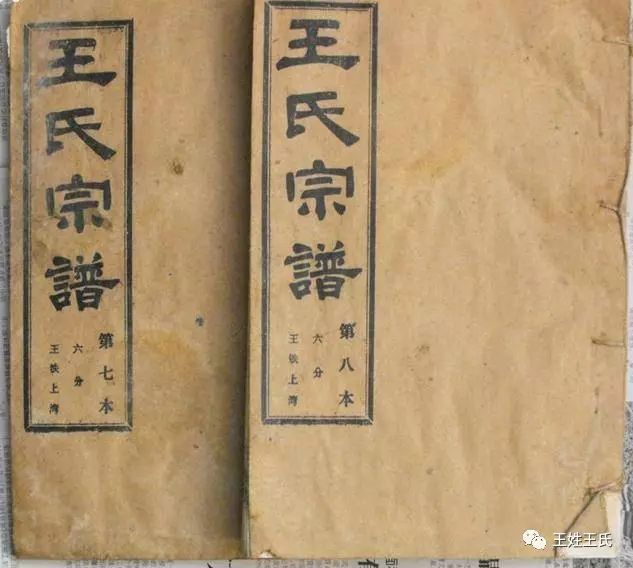 王氏宗譜
第七本
六分
王铁上湾
王氏宗譜
第八本
六分
王铁上湾
王姓王氏